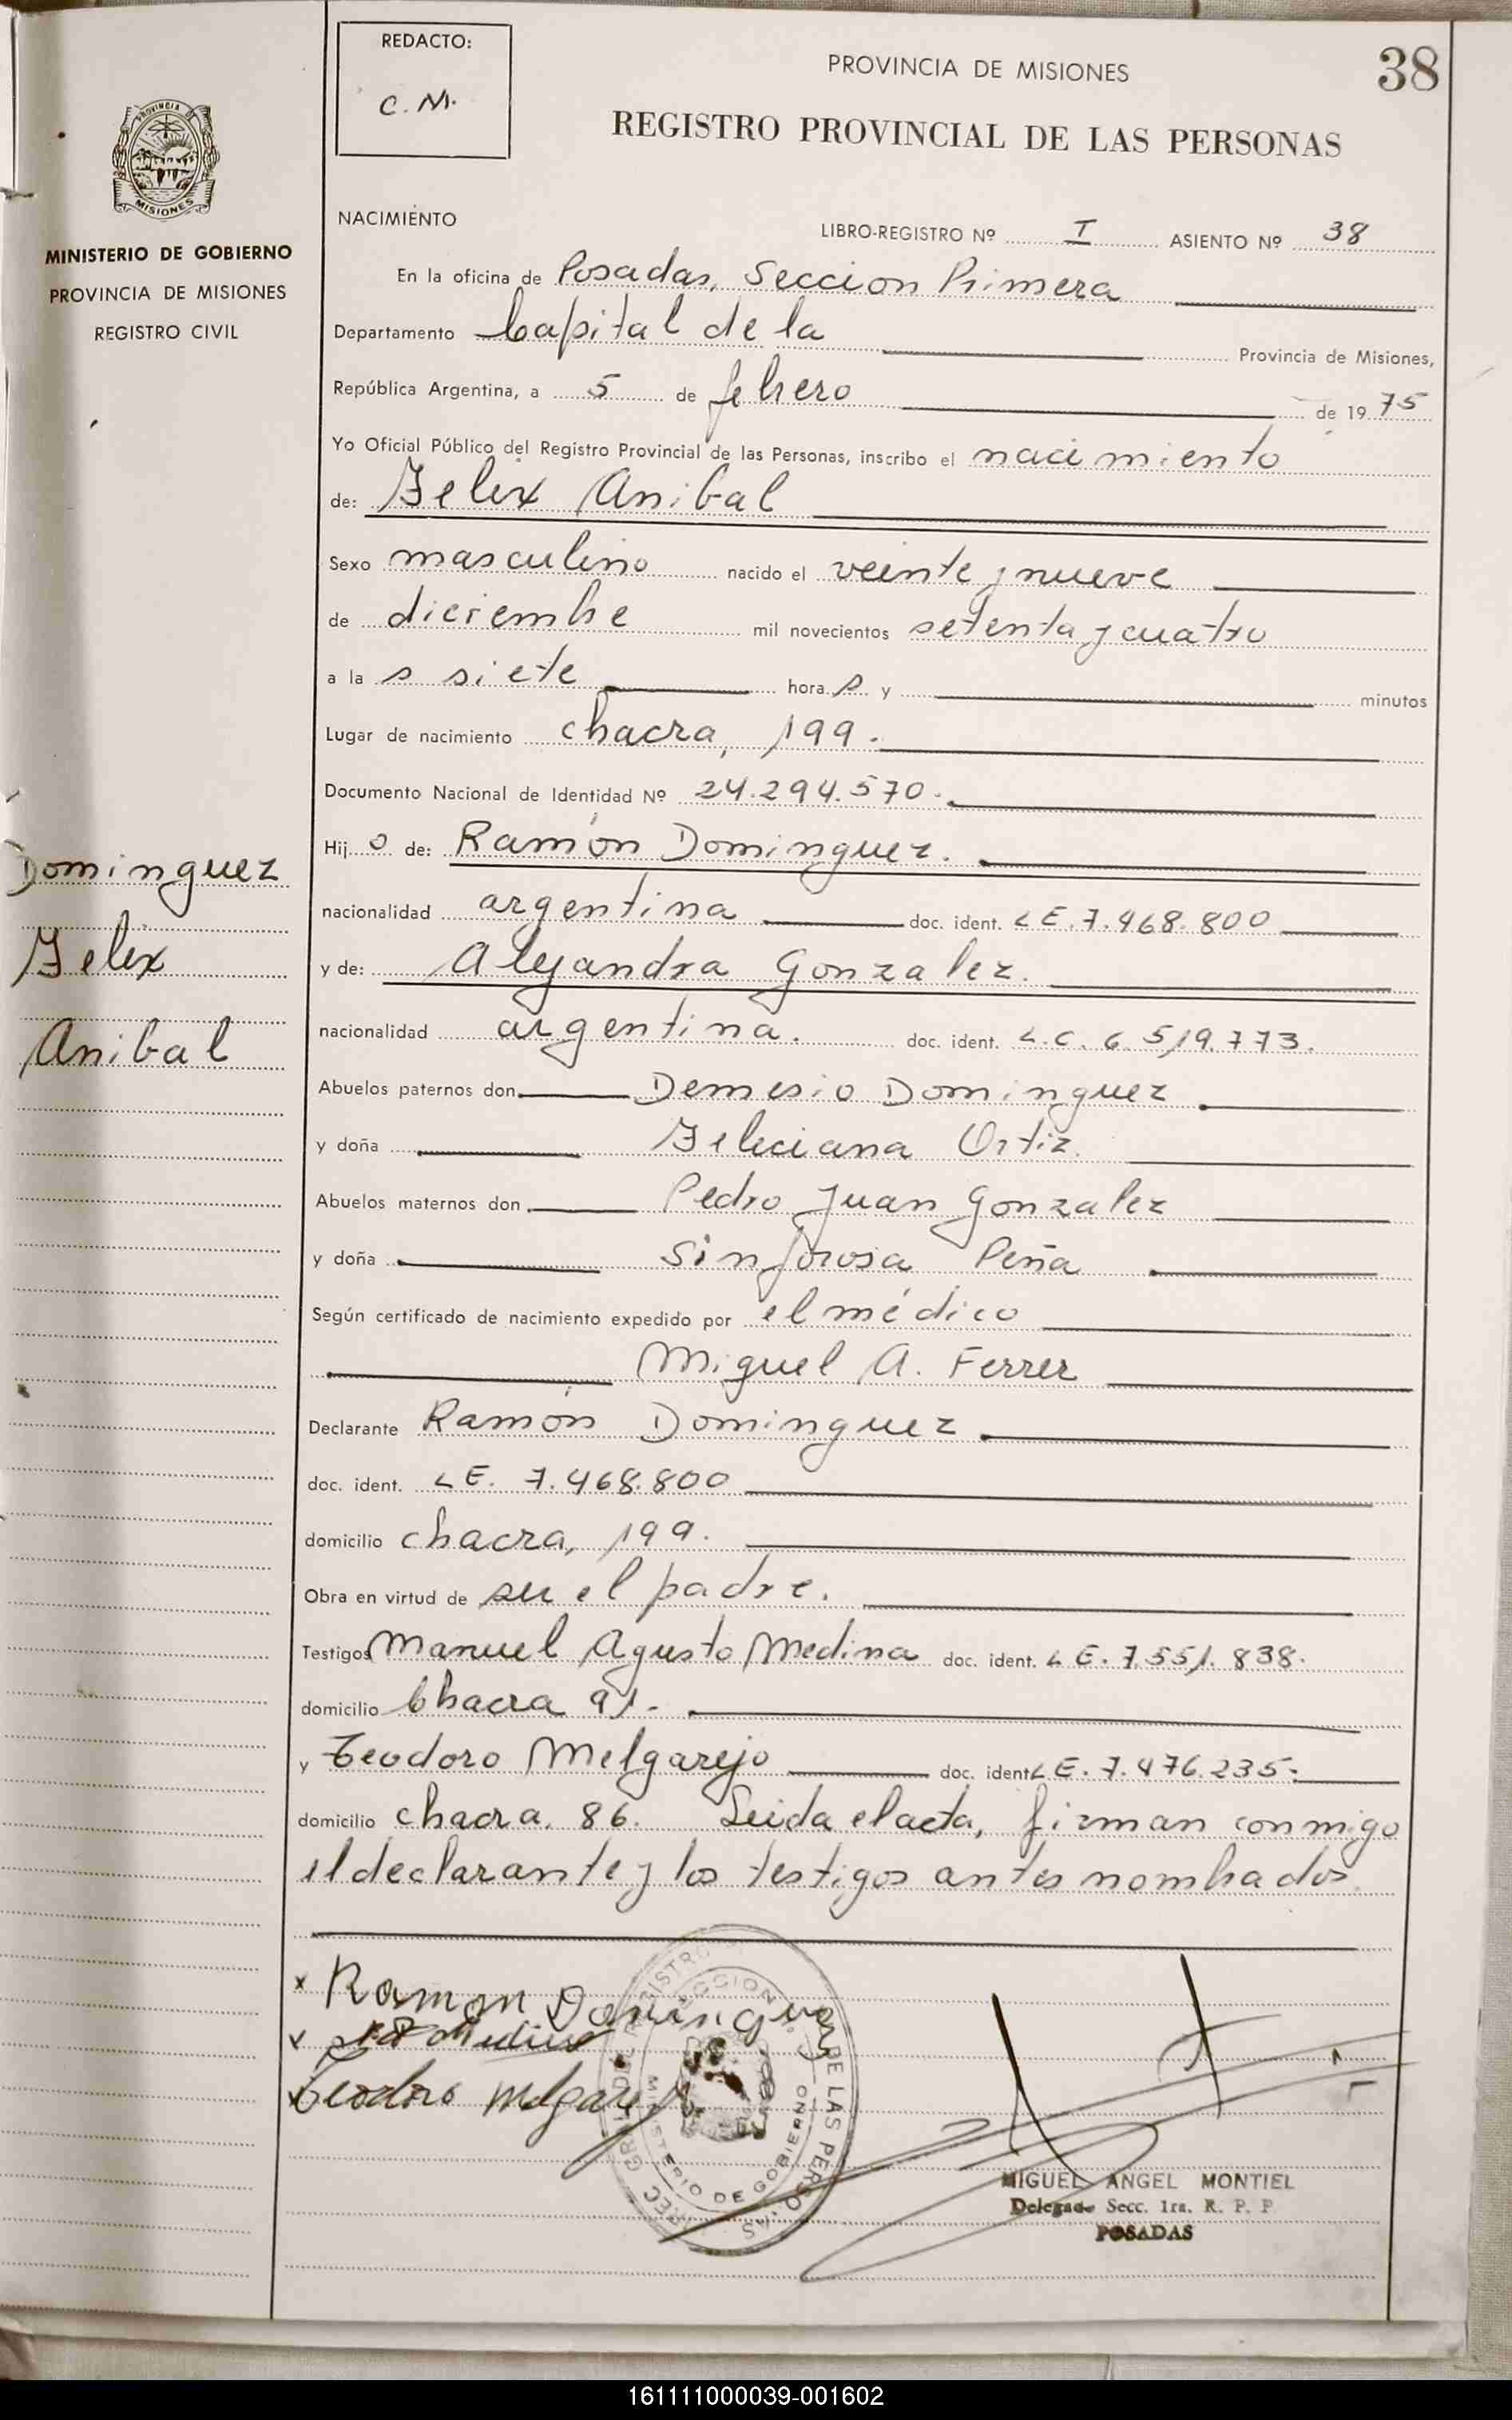 REDACTO:
C. M.
PROVINCIA DE MISIONES
38
REGISTRO PROVINCIAL DE LAS PERSONAS
PROVINCIA
MISIONES
MINISTERIO DE GOBIERNO
PROVINCIA DE MISIONES
REGISTRO CIVIL
NACIMIENTO
LIBRO-REGISTRO Nº I ASIENTO Nº 38
En la oficina de Posadas, Seccion Primera
Departamento Capital de la Provincia de Misiones,
República Argentina, a 5 de febrero de 1975
Yo Oficial Público del Registro Provincial de las Personas, inscribo el nacimiento
de: Felix Anibal
Sexo masculino nacido el veinte y nueve
de diciembre mil novecientos setenta y cuatro
a la s siete hora s y minutos
Lugar de nacimiento chacra, 199.
Documento Nacional de Identidad Nº 24.294.570.
Hij o de: Ramón Dominguez.
nacionalidad argentina doc. ident. L E. 7.468.800
y de: Alejandra Gonzalez.
nacionalidad argentina. doc. ident. L. C. 6.519.773.
Abuelos paternos don Demesio Dominguez
y doña Feliciana Ortiz.
Abuelos maternos don Pedro Juan Gonzalez
y doña Sinforosa Peña
Según certificado de nacimiento expedido por el médico
Miguel A. Ferrer
Declarante Ramón Dominguez
doc. ident. L E. 7.468.800
domicilio chacra, 199.
Obra en virtud de ser el padre.
Testigos Manuel Agusto Medina doc. ident. L E. 7.551.838.
domicilio Chacra 91.
y Teodoro Melgarejo doc. ident. L E. 7.476.235.
domicilio chacra. 86. Leida el acta, firman conmigo
el declarante y los testigos antes nombrados.
Dominguez
Felix
Anibal
x Ramon Dominguez
x Medina
x Teodoro Melgarejo
MINISTERIO DE GOBIERNO
MIGUEL ANGEL MONTIEL
Delegado Secc. 1ra. R. P. P.
POSADAS
161111000039-001602